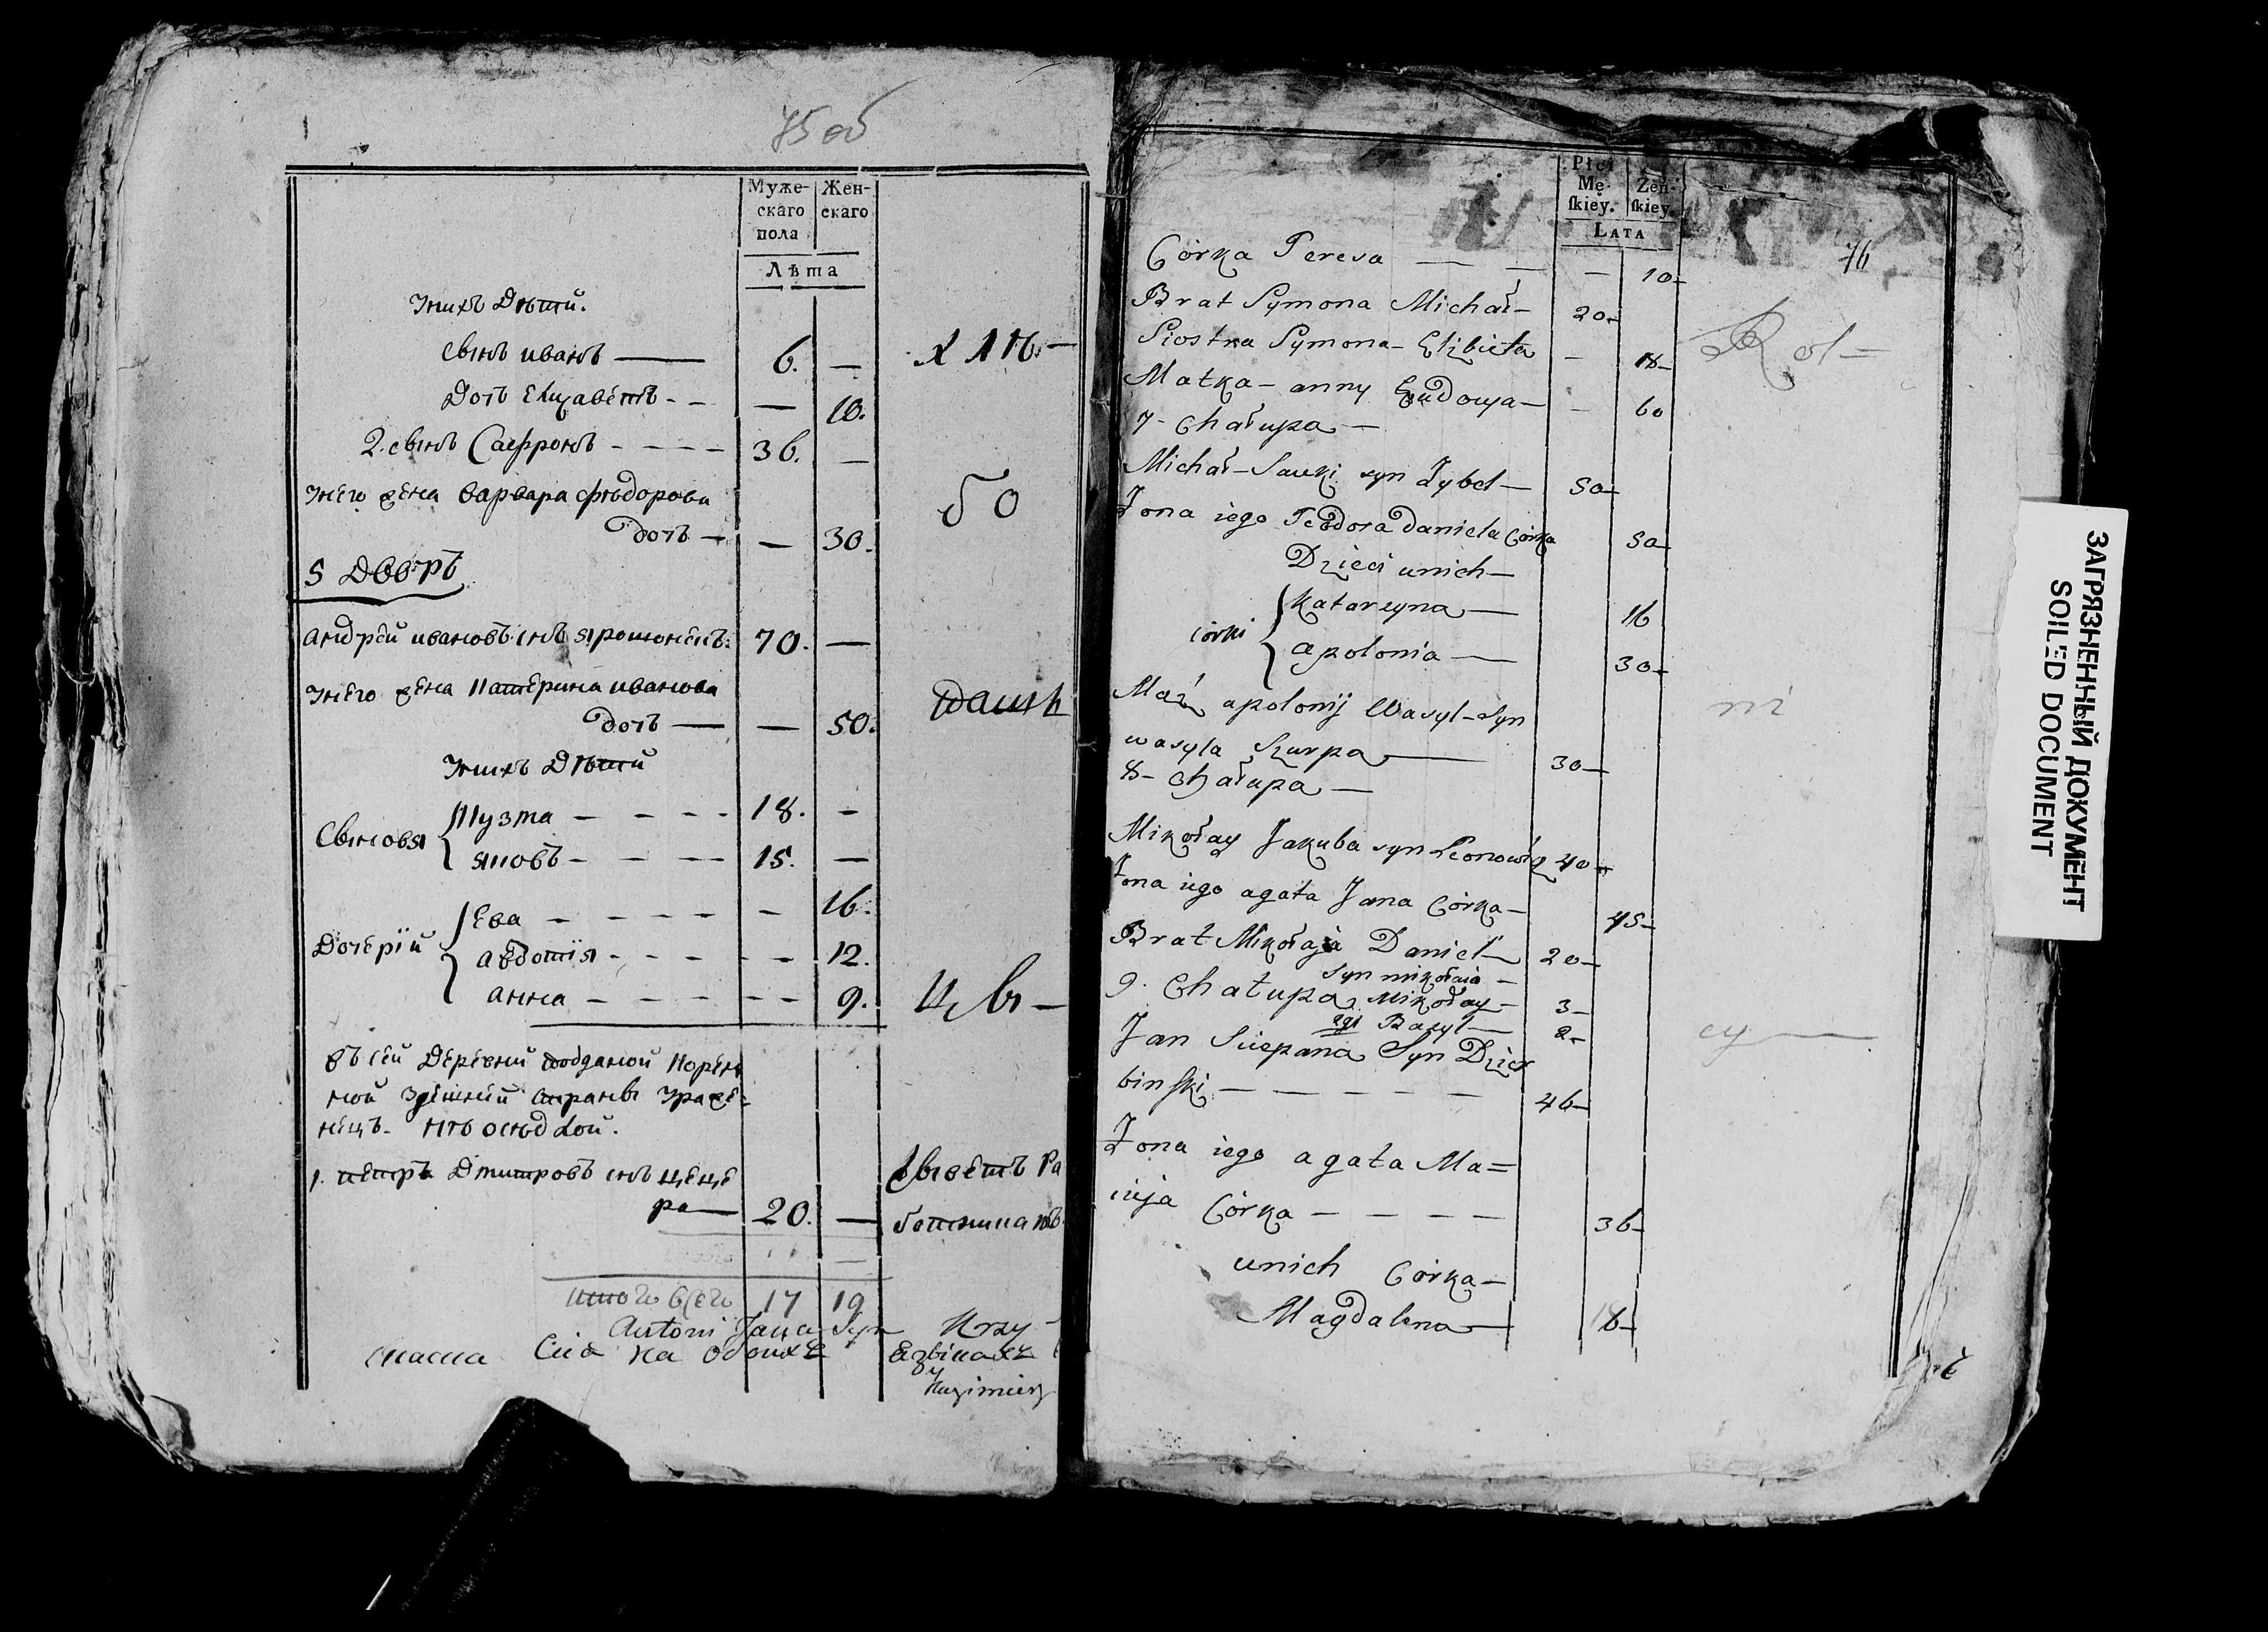 75 об
Муже-
скаго
пола
Жен-
скаго
Лѣта
У нихъ Дѣтей.
Сынъ иванъ — 6. —
Дочь Елизаветъ - - — 10.
2. сынъ Сафронъ - - - - 36. —
У него жена варвара фѣдорова
дочь — — 30.
5 Дворъ
андрей ивановъ снъ 70. —
У него жена катерина иванова
дочь — — 50.
У нихъ Дѣтей
Сыновя
Кузма — - - - 18. —
яковъ - - - - 15. —
Дочерїй
Ева — - - - - 16.
авдотїя - - - - — 12.
анна — - - - - - 9.
хлѣ —
бо
паш
цы —
въ сей Деревни подданой корен
ной здешней страны уроже-
нецъ. нѣ
1. петръ Дмитровъ снъ цеце
ра — 20. —
Живетъ ра
ботникомъ
итого всего 17 19
Antoni Jana Syn Krzy
Kazimierz
Płci
Mę-
ſkiey.
Żeń-
ſkiey.
LATA
76
Córka Teresa — — — 10-
Brat Symona Michał- 20-
Siostra Symona- Elzbieta — 18-
Matka- anny Eudoeya- - 60
7- Chałupa —
Rol=
Michał- Sawki syn Zybel — 50-
Zona iego Teodora Daniela Córka 50-
Dzieci unich —
córki
Katarzyna — 16
apolonia — 30-
Mąż apolonij Wasyl- Syn
wasyla Szurpa — 30-
8- Chałupa —
ni
Mikołay Jakuba syn Leonowicz 40-
Zona iego agata Jana Córka- 45-
Brat Mikołaja Daniel — 20-
Syn mikołaia —
9. Chałupa Mikołay — 3-
2gi Bazyl — 2-
Jan Sciepana Syn Dzier
binſki — — — — — 46-
cy —
Zona iego agata Ma=
cieja Córka — — — — 36-
unich Córka-
Magdalena — 18-
ЗАГРЯЗНЕННЫЙ ДОКУМЕНТ
SOILED DOCUMENT